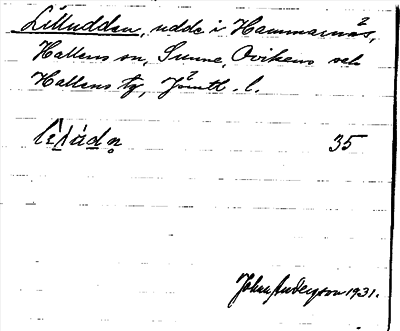 Lilludden, udde i Hammarnäs,
Hallens sn, Sunne, Ovikens och
Hallens tg, Jämtl. l.
35
Johan Anderson 1931.